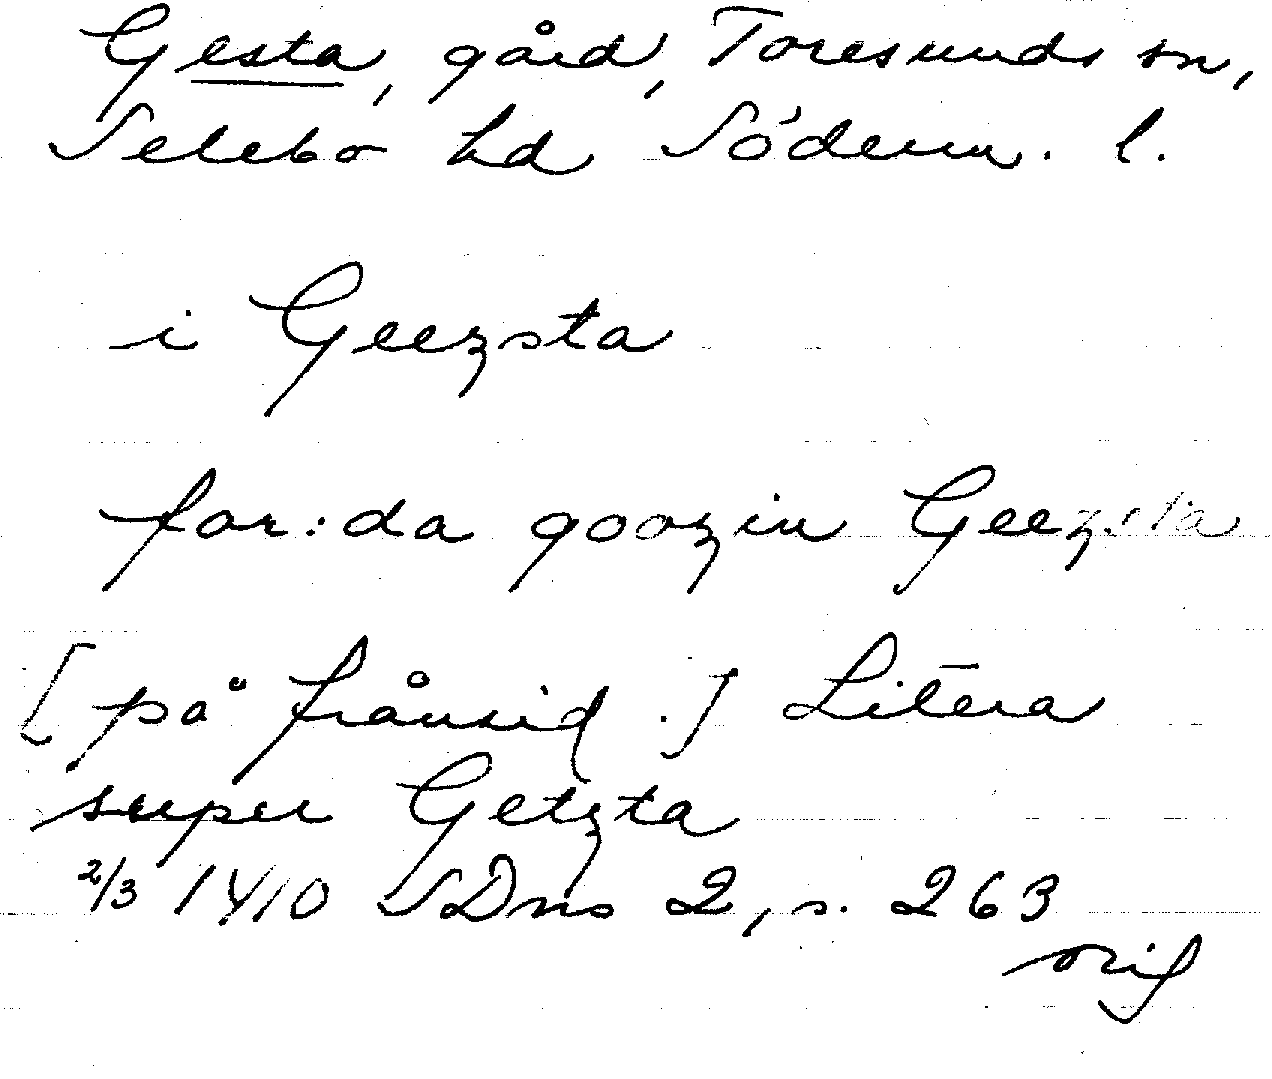 Gesta, gård, Toresunds sn,
Selebo hd Söderm. l.
i Geezsta
for:da goozin Geezsta
[på frånsid.] Litēra
super Getzta
2/3 1410 SDns 2, s. 263
orig